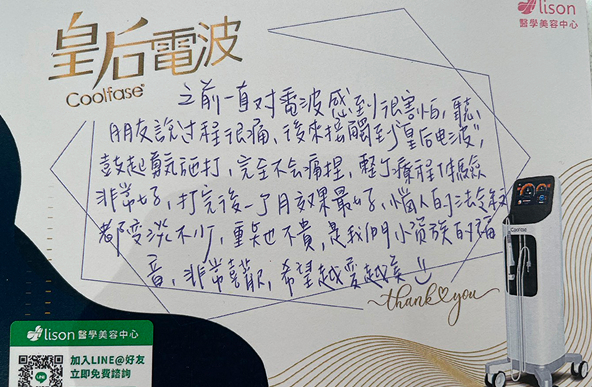 Alison
醫學美容中心
皇后電波
Coolfase®
之前一直对電波感到很害怕，聽
朋友說过程很痛，後來接觸到"皇后电波"，
鼓起勇气施打，完全不会痛捏，整个療程体驗
非常好，打完後一个月效果最好，惱人的法令紋
都变淡不少，重点也不貴，是我們小资族的福
音，非常喜歡，希望越愛越美
thank you
Coolfase
Alison 醫學美容中心
加入LINE@好友
立即免費諮詢
LINE